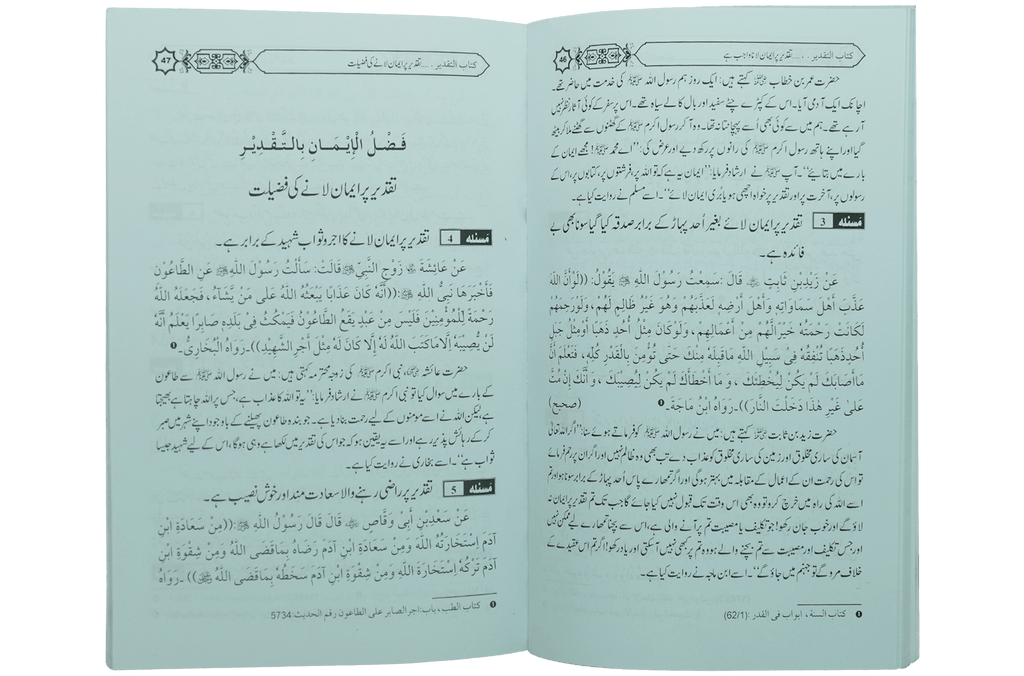 46
کتاب التقدیر .... تقدیر پر ایمان لانا واجب ہے
حضرت عمر بن خطاب ﷜ کہتے ہیں: ایک روز ہم رسول اللہ ﷺ کی خدمت میں حاضر تھے۔
اچانک ایک آدمی آیا۔ اس کے کپڑے چٹے سفید اور بال کالے سیاہ تھے۔ اس پر سفر کے کوئی آثار نظر نہیں
آ رہے تھے۔ ہم میں سے کوئی بھی اُسے پہچانتا نہ تھا۔ وہ آ کر رسول اکرم ﷺ کے گھٹنوں سے گھٹنے ملا کر بیٹھ
گیا اور اپنے ہاتھ رسول اکرم ﷺ کی رانوں پر رکھ دیے اور عرض کی: ''اے محمد ﷺ! مجھے ایمان کے
بارے میں بتایئے''۔ آپ ﷺ نے ارشاد فرمایا: ''ایمان یہ ہے کہ تو اللہ پر، فرشتوں پر، کتابوں پر، اس کے
رسولوں پر، آخرت پر اور تقدیر پر خواہ اچھی ہو یا بُری ایمان لائے''۔ اسے مسلم نے روایت کیا ہے۔
مسئله 3 تقدیر پر ایمان لائے بغیر اُحد پہاڑ کے برابر صدقہ کیا گیا سونا بھی بے
فائدہ ہے۔
عَنْ زَيْدِ بْنِ ثَابِتٍ ﷜ قَالَ: سَمِعْتُ رَسُوْلَ اللّٰهِ ﷺ يَقُوْلُ: ((لَوْ أَنَّ اللّٰهَ
عَذَّبَ أَهْلَ سَمَاوَاتِهِ وَأَهْلَ أَرْضِهِ لَعَذَّبَهُمْ وَهُوَ غَيْرُ ظَالِمٍ لَهُمْ، وَلَوْ رَحِمَهُمْ
لَكَانَتْ رَحْمَتُهُ خَيْرًا لَّهُمْ مِنْ أَعْمَالِهِمْ، وَلَوْ كَانَ مِثْلُ أُحُدٍ ذَهَبًا أَوْ مِثْلُ جَبَلِ
أُحُدٍ ذَهَبًا تُنْفِقُهُ فِي سَبِيْلِ اللّٰهِ مَا قَبِلَهُ مِنْكَ حَتَّى تُؤْمِنَ بِالْقَدْرِ كُلِّهِ، فَتَعْلَمَ أَنَّ
مَا أَصَابَكَ لَمْ يَكُنْ لِيُخْطِئَكَ ، وَ مَا أَخْطَأَكَ لَمْ يَكُنْ لِيُصِيْبَكَ ، وَ أَنَّكَ إِنْ مُتَّ
عَلَى غَيْرِ هٰذَا دَخَلْتَ النَّارَ))۔ رَوَاهُ ابْنُ مَاجَةَ۔ ❶ (صحيح)
حضرت زید بن ثابت ﷜ کہتے ہیں: میں نے رسول اللہ ﷺ کو فرماتے ہوئے سنا: ''اگر اللہ تعالیٰ
آسمان کی ساری مخلوق اور زمین کی ساری مخلوق کو عذاب دے تب بھی وہ ظالم نہیں اور اگر ان پر رحم فرمائے
تو اس کی رحمت ان کے اعمال کے مقابلہ میں بہتر ہوگی اور اگر تمہارے پاس اُحد پہاڑ کے برابر سونا ہو اور تم
اسے اللہ کی راہ میں خرچ کرو تو وہ بھی اس وقت تک قبول نہیں کیا جائے گا جب تک تم تقدیر پر ایمان نہ
لاؤ گے اور خوب جان رکھو! جو تکلیف یا مصیبت تم پر آنے والی ہے، اس سے بچنا تمہارے لیے ممکن نہیں
اور جس تکلیف اور مصیبت سے تم بچنے والے ہو وہ تم پر کبھی نہیں آ سکتی اور یاد رکھو! اگر تم اس عقیدے کے
خلاف مرو گے تو جہنم میں جاؤ گے''۔ اسے ابن ماجہ نے روایت کیا ہے۔
❶ كتاب السنة ، ابواب فى القدر : (62/1)
47
کتاب التقدیر .... تقدیر پر ایمان لانے کی فضیلت
فَضْلُ الْإِيْمَانِ بِالتَّقْدِيْرِ
تقدیر پر ایمان لانے کی فضیلت
مسئله 4 تقدیر پر ایمان لانے کا اجر و ثواب شہید کے برابر ہے۔
عَنْ عَائِشَةَ ﷞ زَوْجِ النَّبِيِّ ﷺ قَالَتْ: سَأَلْتُ رَسُوْلَ اللّٰهِ ﷺ عَنِ الطَّاعُوْنِ
فَأَخْبَرَهَا نَبِيُّ اللّٰهِ ﷺ: ((أَنَّهُ كَانَ عَذَابًا يَبْعَثُهُ اللّٰهُ عَلٰى مَنْ يَّشَاءُ، فَجَعَلَهُ اللّٰهُ
رَحْمَةً لِّلْمُؤْمِنِيْنَ فَلَيْسَ مِنْ عَبْدٍ يَقَعُ الطَّاعُوْنُ فَيَمْكُثُ فِيْ بَلَدِهِ صَابِرًا يَعْلَمُ أَنَّهُ
لَنْ يُّصِيْبَهُ إِلَّا مَا كَتَبَ اللّٰهُ لَهُ إِلَّا كَانَ لَهُ مِثْلُ أَجْرِ الشَّهِيْدِ))۔ رَوَاهُ الْبُخَارِيُّ۔ ❶
حضرت عائشہ ﷞، نبی اکرم ﷺ کی زوجہ محترمہ کہتی ہیں: میں نے رسول اللہ ﷺ سے طاعون
کے بارے میں سوال کیا تو نبی اکرم ﷺ نے ارشاد فرمایا: ''یہ تو اللہ کا عذاب ہے، جس پر اللہ چاہتا ہے بھیجتا
ہے، لیکن اللہ نے اسے مومنوں کے لیے رحمت بنا دیا ہے۔ جو بندہ طاعون پھیلنے کے باوجود اپنے شہر میں صبر
کر کے رہائش پذیر رہے اور اسے یہ یقین ہو کہ جو اس کی تقدیر میں لکھا ہے وہی ہوگا، اس کے لیے شہید جیسا
ثواب ہے''۔ اسے بخاری نے روایت کیا ہے۔
مسئله 5 تقدیر پر راضی رہنے والا سعادت مند اور خوش نصیب ہے۔
عَنْ سَعْدِ بْنِ أَبِيْ وَقَّاصٍ ﷜ قَالَ قَالَ رَسُوْلُ اللّٰهِ ﷺ: ((مِنْ سَعَادَةِ ابْنِ
آدَمَ اِسْتِخَارَتُهُ اللّٰهَ وَمِنْ سَعَادَةِ ابْنِ آدَمَ رَضَاهُ بِمَا قَضَى اللّٰهُ وَمِنْ شِقْوَةِ ابْنِ
آدَمَ تَرْكُهُ اسْتِخَارَةَ اللّٰهِ وَمِنْ شِقْوَةِ ابْنِ آدَمَ سَخَطُهُ بِمَا قَضَى اللّٰهُ ﷻ))۔ رَوَاهُ
❶ كتاب الطب ، باب : اجر الصابر على الطاعون رقم الحديث: 5734